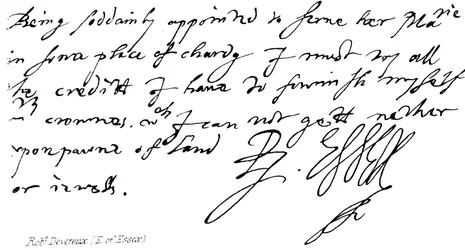 Being soddainly appointed to serve her Matie
in some place of charg I must by all
the creditt I have to furnissh myself
crownes. wch I can not gett neither
upon pawne of land R. Essex
or iewels.
Robt. Devereux (E. of Essex)